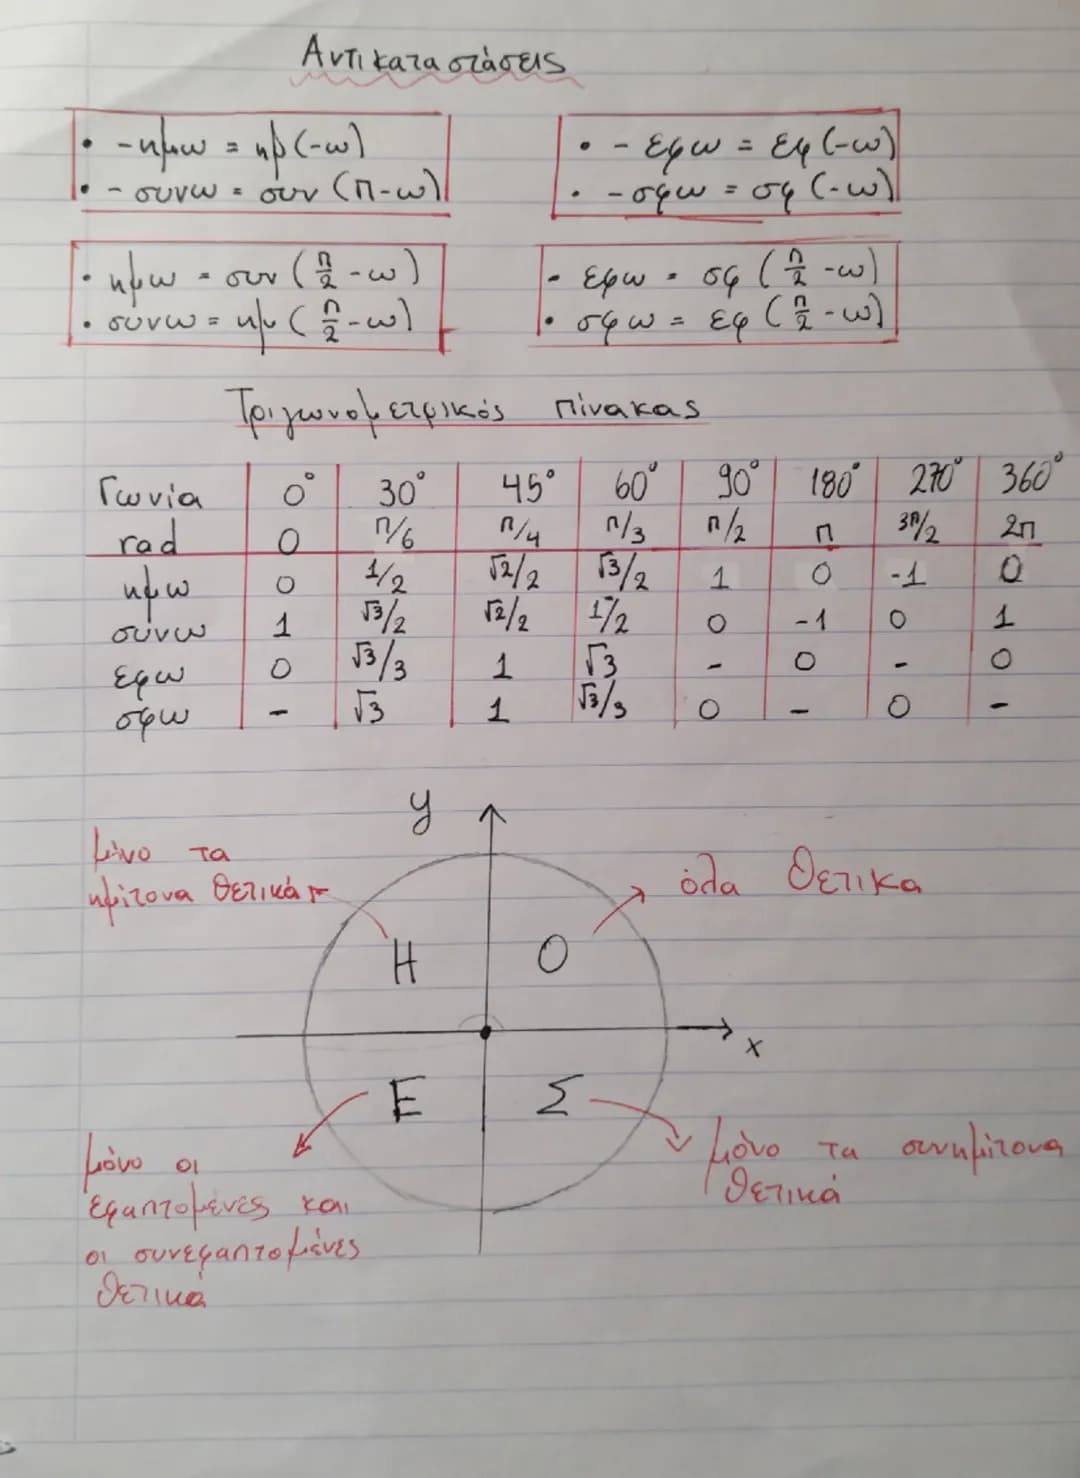 Αντικαταστάσεις
• -ημω = ημ(-ω)
• -συνω = συν (π-ω)
• - εφω = εφ(-ω)
• -σφω = σφ(-ω)
• ημω = συν (π/2 -ω)
• συνω = ημ (π/2 -ω)
- εφω = σφ (π/2 -ω)
• σφω = εφ (π/2 -ω)
Τριγωνομετρικός πίνακας
Γωνία 0° 30° 45° 60° 90° 180° 270° 360°
rad 0 π/6 π/4 π/3 π/2 π 3π/2 2π
ημω 0 1/2 √2/2 √3/2 1 0 -1 0
συνω 1 √3/2 √2/2 1/2 0 -1 0 1
εφω 0 √3/3 1 √3 - 0 - 0
σφω - √3 1 √3/3 0 - 0 -
y
μόνο τα
ημίτονα θετικά
όλα θετικα
Η Ο
x
Ε Σ
μόνο οι
εφαπτομένες και
οι συνεφαπτομένες
θετικά
μόνο τα συνημίτονα
θετικά